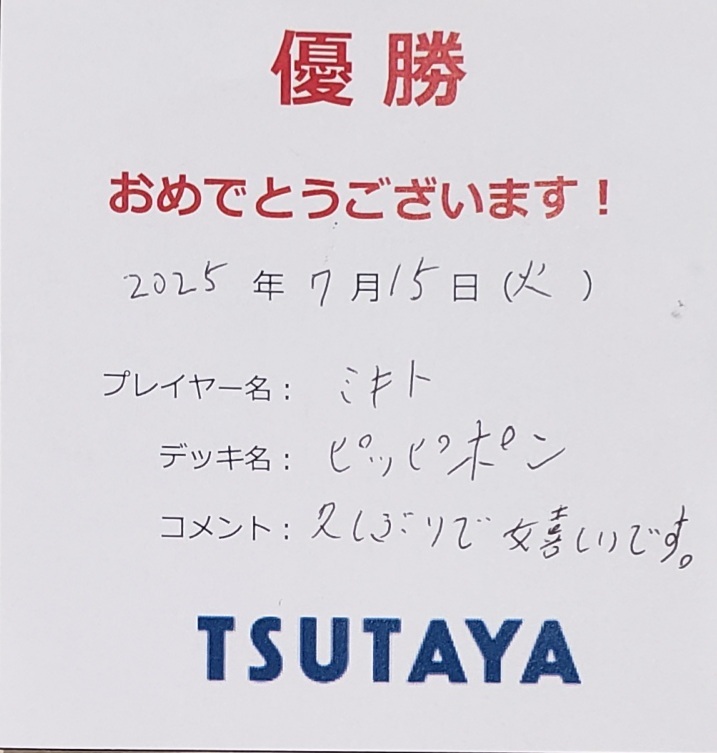 優勝
おめでとうございます！
2025年7月15日(火)
プレイヤー名：ミキト
デッキ名：ピッピポン
コメント：久しぶりで嬉しいです。
TSUTAYA